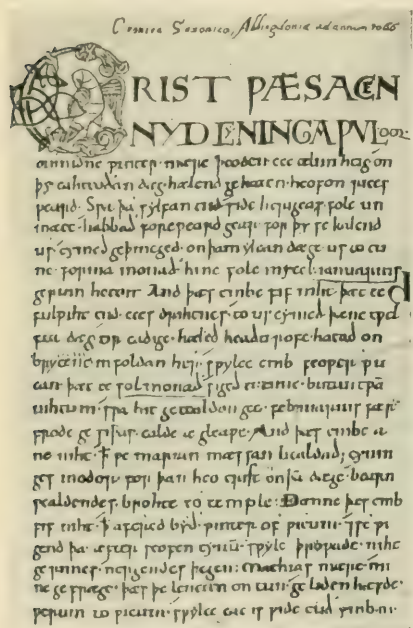 Cronica Saxonica, Abbingdoniæ ad annum 1066
CRIST ǷÆS ACEN
NYD CẎNINGA ǷULdor
on midne ƿinter · mære þeoden ece ælmihtig on
þy eahteoðan dæg · hælend gehaten · heofon rices
ƿeard. Sƿa þa sylfan tiid side herigeas folc un
mæte · habbað foreƿeard gear for þy se kalend
us cymeð geþincged · on þam ylcan dæge us to tu
ne · forma monað · hine folc mycel · ianuarius
gerum heton And þæs embe fif niht · þæt te
fulƿiht tiid eces drihtnes · to us cymeð þæne tƿel
fta dæg tir eadige · hæleð heaðu rofe · hatað on
brytene in foldan her; sƿylce emb feoƿer ƿu
can þæt te solmonað sigeð to tune · butan tƿam
nihtum · sƿa hit getealdon geo · februarius fær ·
frode ge siþas · ealde æ gleaƿe · And þæs embe a
ne niht · ꝥ ƿe marian mæssan healdað; cynin
ges modor for þan heo crist on þam dæge · bearn
ƿealdendes · brohte to temple · Ðonne þæs emb
fif niht · ꝥ afered byð · ƿinter of ƿicum · ⁊ se ƿi
gend þa · æfter seofen tynum · sƿylce þroƿade · niht
gerimes · nergendes þegen: mathias mære · mi
ne ge fræge · þæs þe lencten on tun · ge liden hæfde ·
ƿerum to ƿicum · sƿylce eac is ƿide cuð ymb iii ·